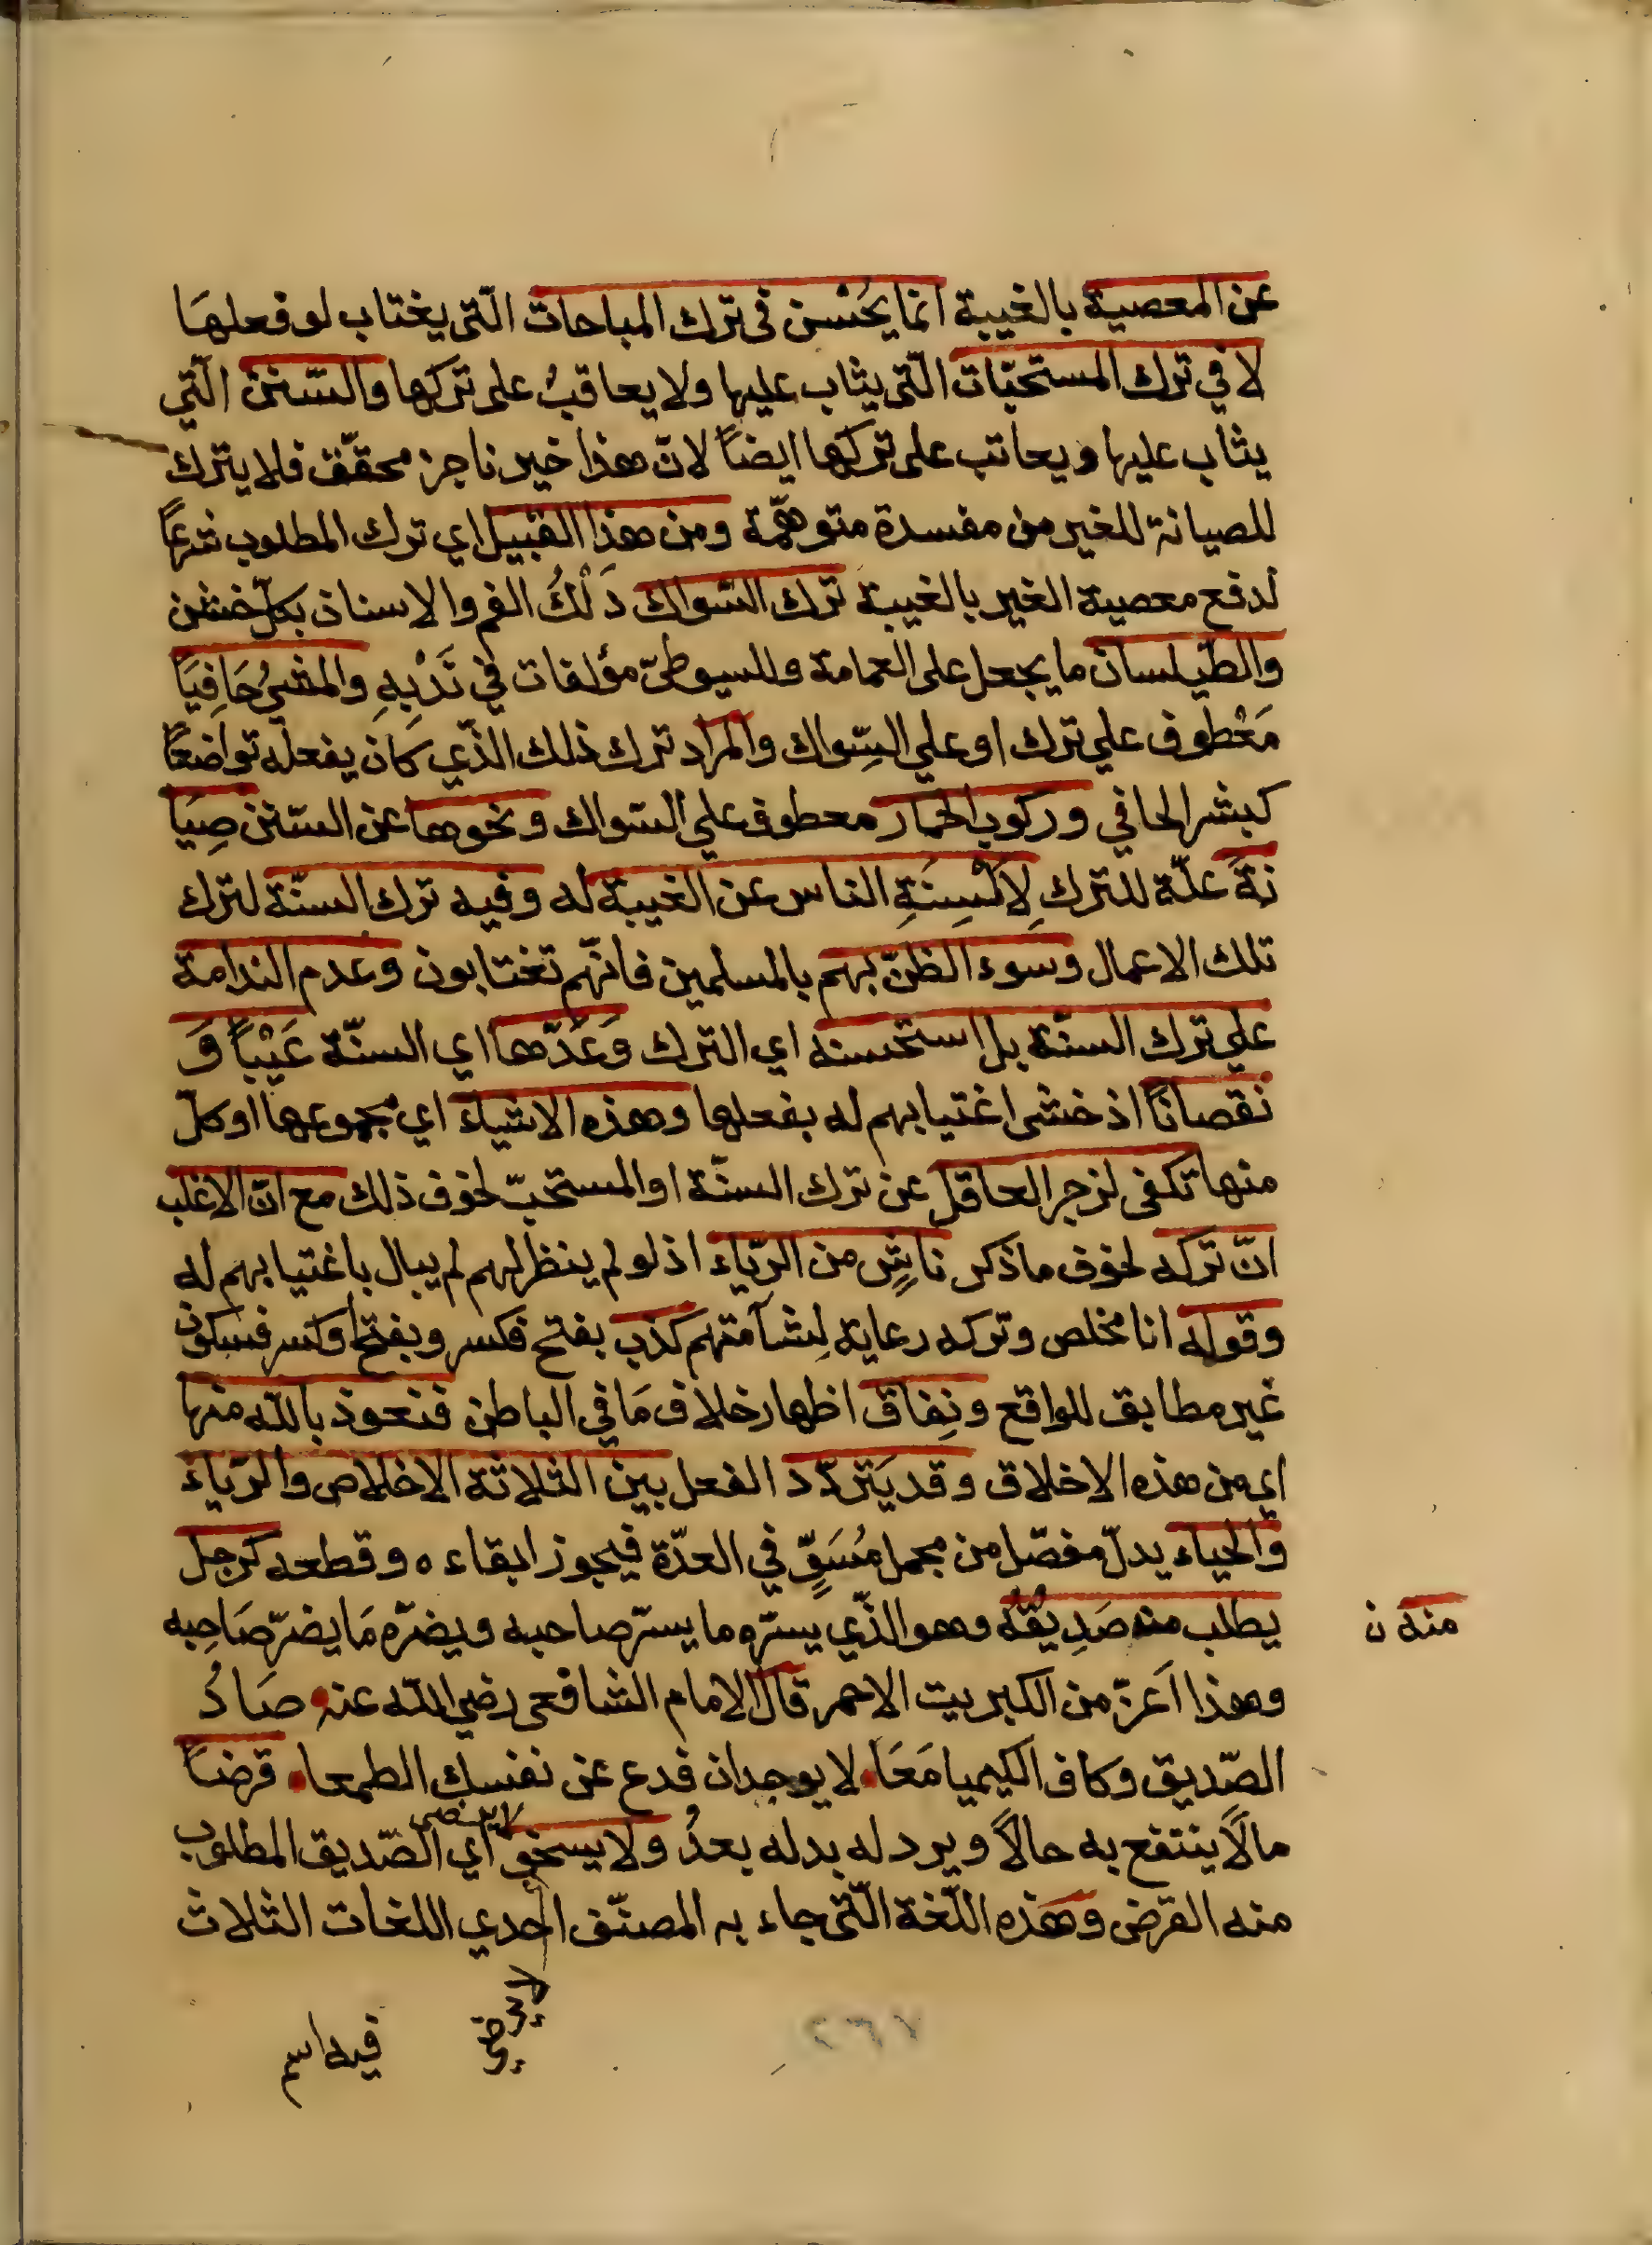 عن المعصية بالغيبة انما يَحْسن فى ترك المباحات الّتى يغتاب لو فعلهَا
لا في ترك المستحبّات الّتى يثاب عليها ولا يعاقبُ على تركها والسّنن الّتي
يثاب عليها ويعاتب على تركها ايضاً لانّ هذا خير ناجز محقّق فلا يترك
للصيانة للغير من مفسدة متوهمّة ومن هذا القبيل اي ترك المطلوب شرعاً
لدفع معصية الغير بالغيبة ترك السّواك دَلْكُ الفم والاسنان بكلّ خشن
والطّيلسان ما يجعل على العمامة وللسيوطىّ مؤلفات في نَدْبِهِ والمشىُ حَافِيَاً
مَعْطوف علي ترك او علي السِّواك والمراد ترك ذلك الذّي كَان يفعله تواضعًا
كبشر الحافي وركوب الحمار معطوف علي السّواك ونحوها عن السّنن صِيَا
نَةً علّة للترك لِاَلْسِنَةِ الناس عن الغيبة له وفيه ترك السنّة لترك
تلك الاعمال وسوء الظنّ بهم بالمسلمين فانّهم تغتابون وعدم الندامة
علي ترك السنّة بل استحسنه اي الترك وَعَدّها اي السنّة عَيْباً وَ
نقصاناً اذ خشى اغتيابهم له بفعلها وهذه الاشياء اي مجموعها او كلّ
منها تكفى لزجر العاقل عن ترك السنّة او المستحبّ لخوف ذلك مع انّ الاغلب
انّ تركه لخوف ما ذكر ناشٍ من الريّاء اذ لو لم ينظر لهم لم يبال باغتيابهم له
وقوله انا مخلص وتركه رعاية لِشآمتهم كذب بفتح فكسر وبفتح او كسر فسكون
غير مطابق للواقع ونِفاق اظهار خلاف مَا في الباطن فنعوذ بالله منها
اي من هذه الاخلاق وقد يَتردّد الفعل بين الثلاثة الاخلاص والريّاء
والحياء يدلّ مفصّل من مجمل مُسَوٍّ في العدّة فيجوز ابقاءه وقطعه كرجل
يطلب منه صَدِيْقُهُ وهو الذّي يسرّه ما يسرّ صاحبه ويضرّه مَا يضرّ صَاحِبه
منه ن
وهذا اَعزّ من الكبريت الاحمر قال الامام الشافعى رضي الله عنه صَادُ
الصّديق وكاف الكيميا مَعَا لا يوجدان فدع عن نفسك الطمعا قرضاً
مالاً ينتفع به حالاً ويرد له بدله بعدُ ولا يسخو اي الصّديق المطلوب
لا يرضى
منه القرض وهذه اللّغة الّتى جاء به المصنّف احدي اللغات الثلاث
فيه اسم
٢٦٧